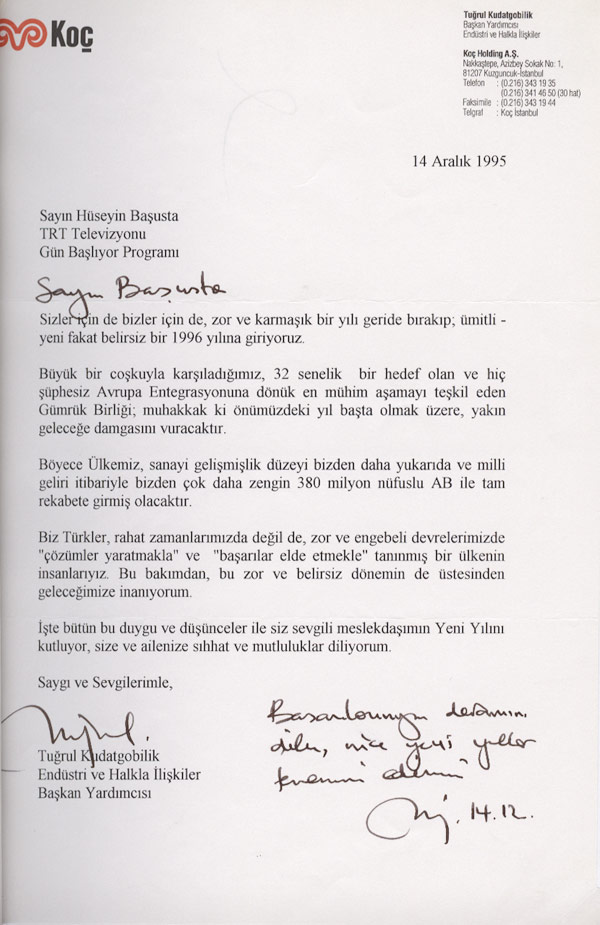 Koç
Tuğrul Kudatgobilik
Başkan Yardımcısı
Endüstri ve Halkla İlişkiler
Koç Holding A.Ş.
Nakkaştepe, Azizbey Sokak No: 1,
81207 Kuzguncuk-İstanbul
Telefon : (0.216) 343 19 35
(0.216) 341 46 50 (30 hat)
Faksimile : (0.216) 343 19 44
Telgraf : Koç İstanbul
14 Aralık 1995
Sayın Hüseyin Başusta
TRT Televizyonu
Gün Başlıyor Programı
Sayın Başusta
Sizler için de bizler için de, zor ve karmaşık bir yılı geride bırakıp; ümitli -
yeni fakat belirsiz bir 1996 yılına giriyoruz.
Büyük bir coşkuyla karşıladığımız, 32 senelik bir hedef olan ve hiç
şüphesiz Avrupa Entegrasyonuna dönük en mühim aşamayı teşkil eden
Gümrük Birliği; muhakkak ki önümüzdeki yıl başta olmak üzere, yakın
geleceğe damgasını vuracaktır.
Böyece Ülkemiz, sanayi gelişmişlik düzeyi bizden daha yukarıda ve milli
geliri itibariyle bizden çok daha zengin 380 milyon nüfuslu AB ile tam
rekabete girmiş olacaktır.
Biz Türkler, rahat zamanlarımızda değil de, zor ve engebeli devrelerimizde
"çözümler yaratmakla" ve "başarılar elde etmekle" tanınmış bir ülkenin
insanlarıyız. Bu bakımdan, bu zor ve belirsiz dönemin de üstesinden
geleceğimize inanıyorum.
İşte bütün bu duygu ve düşünceler ile siz sevgili meslekdaşımın Yeni Yılını
kutluyor, size ve ailenize sıhhat ve mutluluklar diliyorum.
Saygı ve Sevgilerimle,
Tuğrul Kudatgobilik
Endüstri ve Halkla İlişkiler
Başkan Yardımcısı
Başarılarınızın devamını
diler, nice yeni yıllar
temenni ederim
14.12.